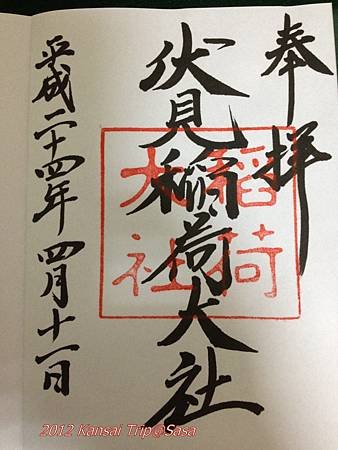 奉拝
伏見稲荷大社
稲荷
大社
平成二十四年四月十一日
2012 Kansai Trip@Sasa